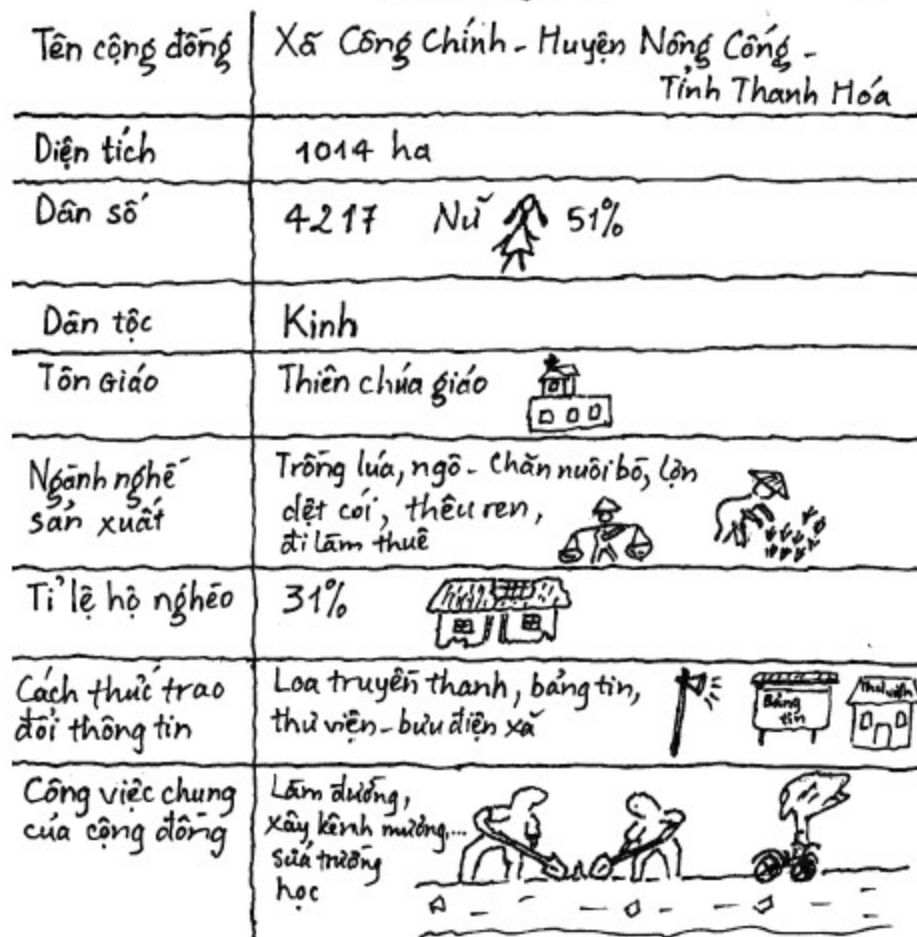 Tên cộng đồng
Xã Công Chính - Huyện Nông Cống -
Tỉnh Thanh Hóa
Diện tích
1014 ha
Dân số
4217 Nữ 51%
Dân tộc
Kinh
Tôn Giáo
Thiên chúa giáo
Ngành nghề
sản xuất
Trồng lúa, ngô - Chăn nuôi bò, lợn
dệt cói, thêu ren,
đi làm thuê
Tỉ lệ hộ nghèo
31%
Cách thức trao
đổi thông tin
Loa truyền thanh, bảng tin,
thư viện - bưu điện xã
Bảng
tin
Thư viện
Công việc chung
của cộng đồng
Làm đường,
xây kênh mương,...
sửa trường
học